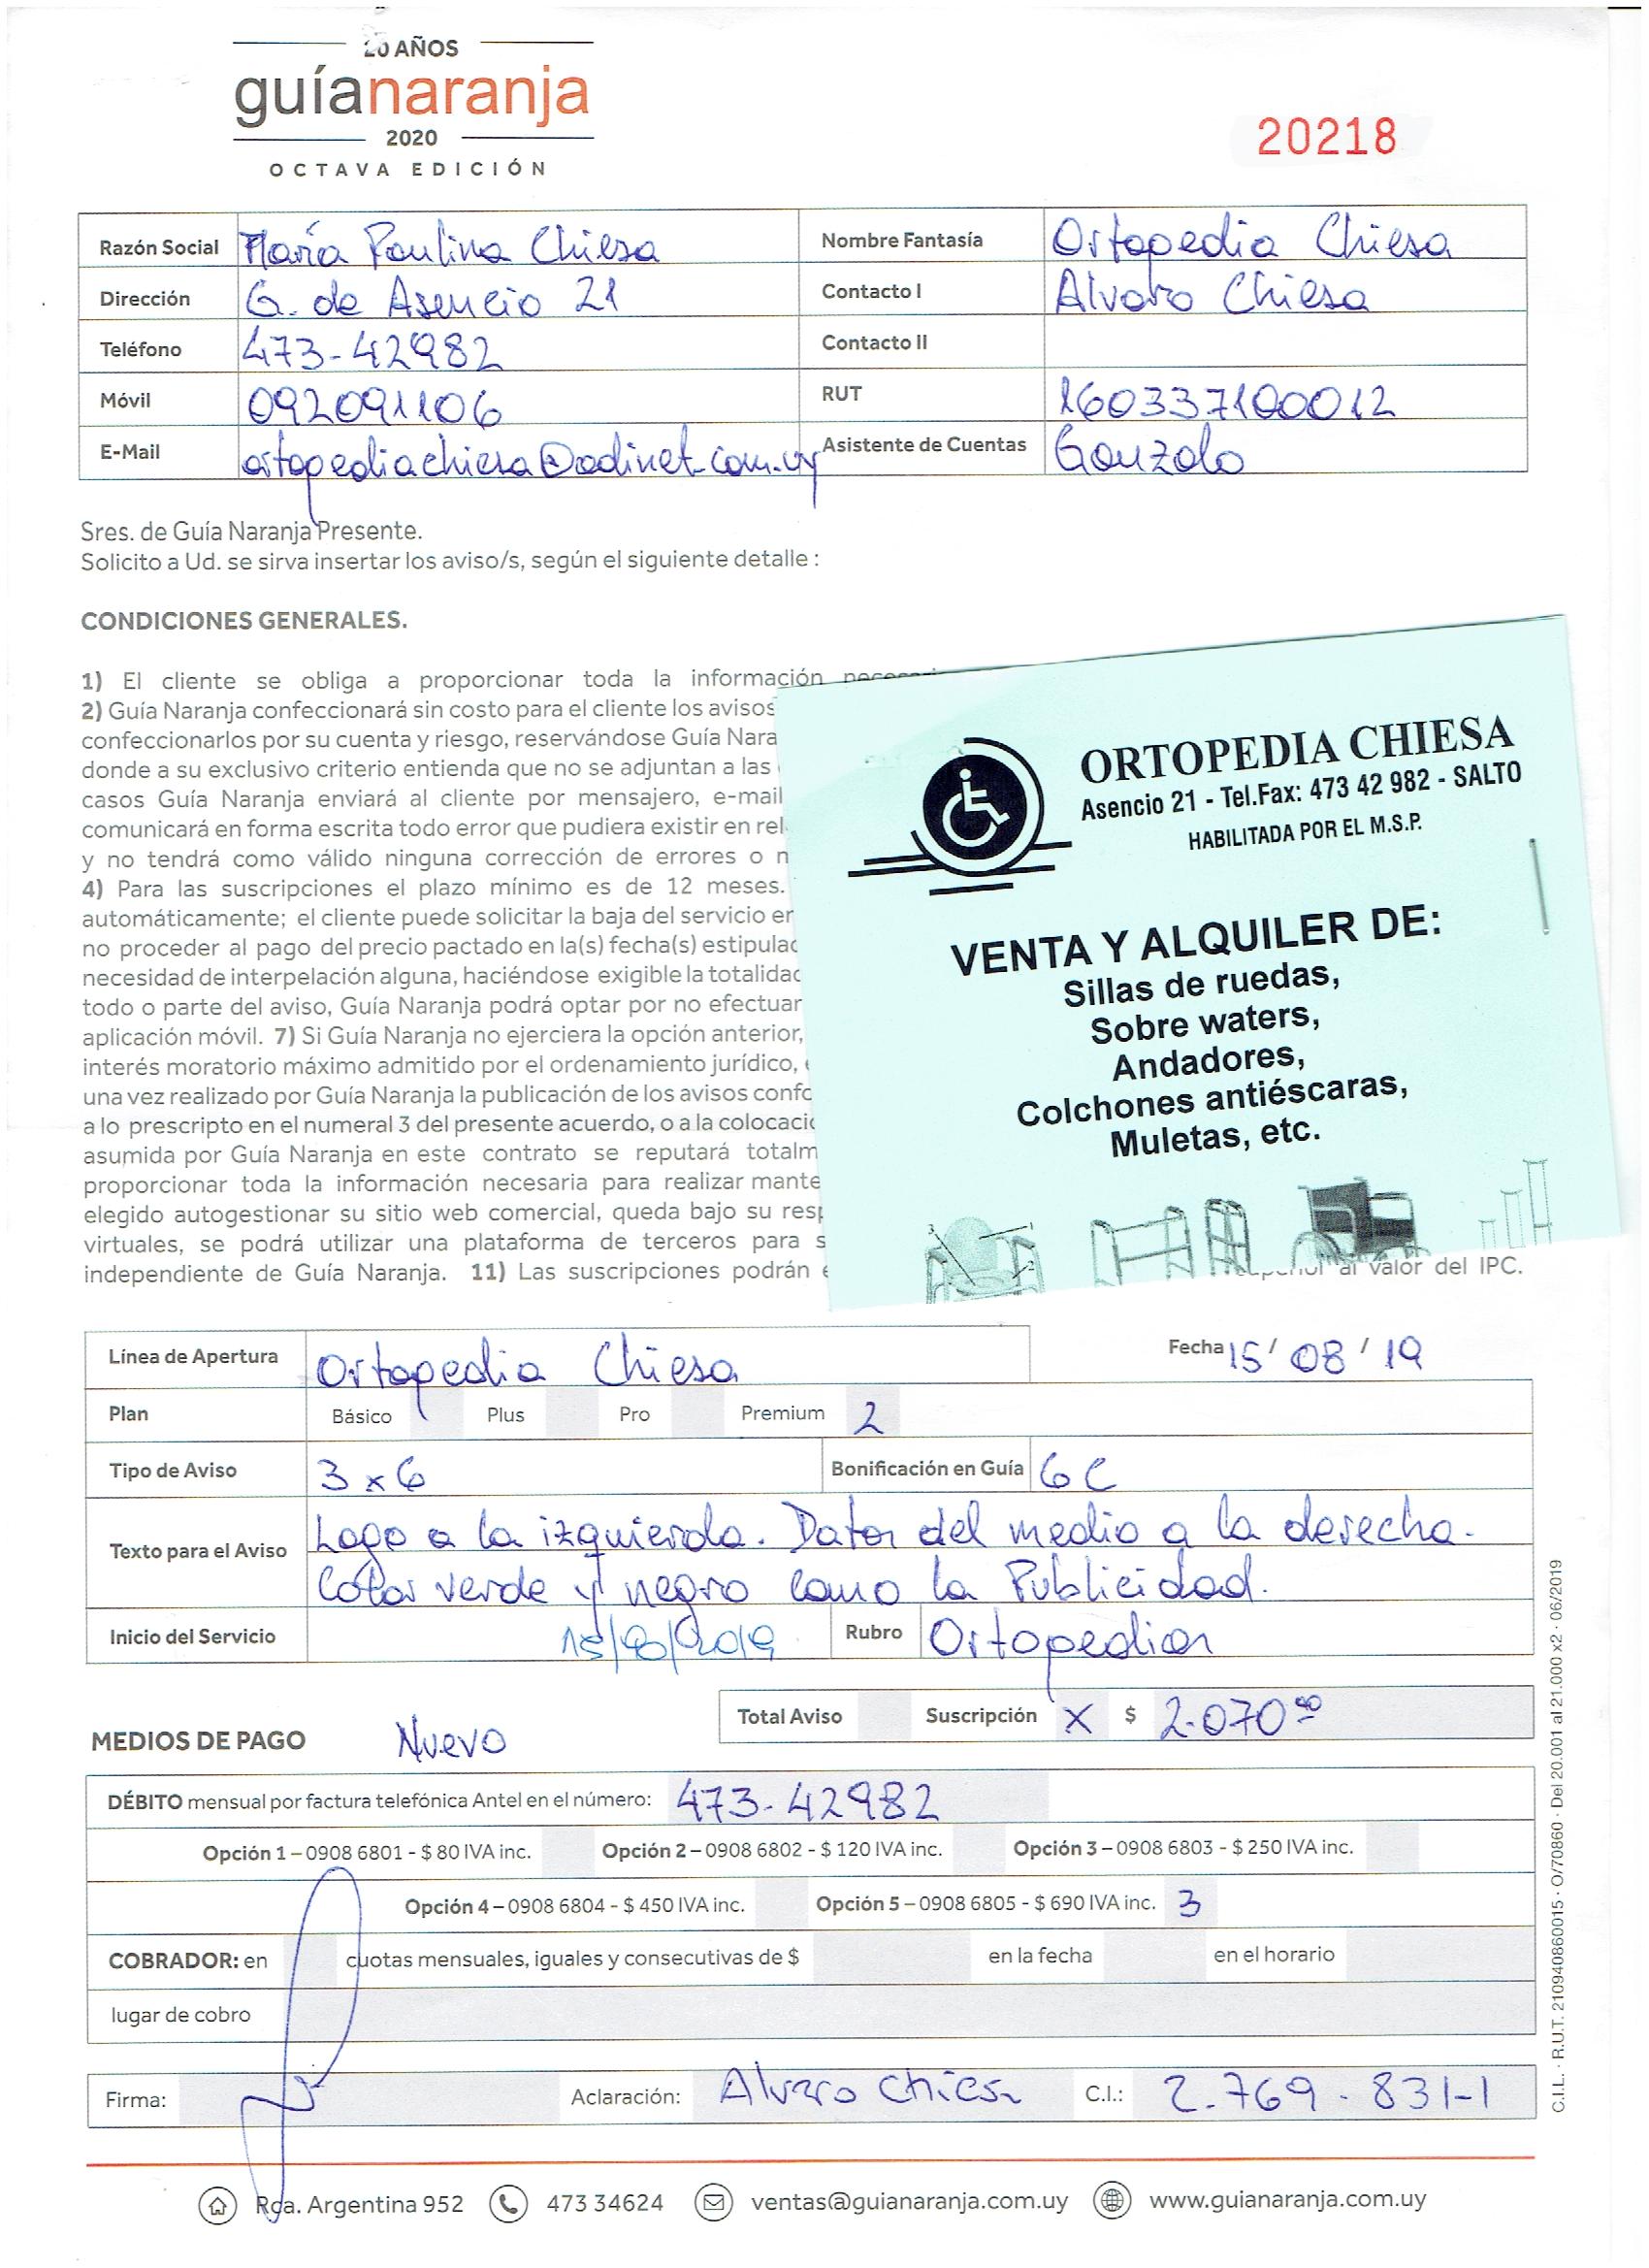 20 AÑOS
guíanaranja
2020
OCTAVA EDICIÓN
20218
Razón Social María Paulina Chiesa Nombre Fantasía Ortopedia Chiesa
Dirección G. de Asencio 21 Contacto I Alvaro Chiesa
Teléfono 473-42982 Contacto II
Móvil 092091106 RUT 160337100012
E-Mail ortopediachiesa@adinet.com.uy Asistente de Cuentas Gonzalo
Sres. de Guía Naranja Presente.
Solicito a Ud. se sirva insertar los aviso/s, según el siguiente detalle :
CONDICIONES GENERALES.
1) El cliente se obliga a proporcionar toda la información
2) Guía Naranja confeccionará sin costo para el cliente los avisos
confeccionarlos por su cuenta y riesgo, reservándose Guía Nara
donde a su exclusivo criterio entienda que no se adjuntan a las
casos Guía Naranja enviará al cliente por mensajero, e-mail
comunicará en forma escrita todo error que pudiera existir en rel
y no tendrá como válido ninguna corrección de errores o n
4) Para las suscripciones el plazo mínimo es de 12 meses.
automáticamente; el cliente puede solicitar la baja del servicio en
no proceder al pago del precio pactado en la(s) fecha(s) estipulad
necesidad de interpelación alguna, haciéndose exigible la totalidad
todo o parte del aviso, Guía Naranja podrá optar por no efectuar
aplicación móvil. 7) Si Guía Naranja no ejerciera la opción anterior,
interés moratorio máximo admitido por el ordenamiento jurídico,
una vez realizado por Guía Naranja la publicación de los avisos confo
a lo prescripto en el numeral 3 del presente acuerdo, o a la colocació
asumida por Guía Naranja en este contrato se reputará totalm
proporcionar toda la información necesaria para realizar mante
elegido autogestionar su sitio web comercial, queda bajo su resp
virtuales, se podrá utilizar una plataforma de terceros para s
independiente de Guía Naranja. 11) Las suscripciones podrán al valor del IPC.
ORTOPEDIA CHIESA
Asencio 21 - Tel.Fax: 473 42 982 - SALTO
HABILITADA POR EL M.S.P.
VENTA Y ALQUILER DE:
Sillas de ruedas,
Sobre waters,
Andadores,
Colchones antiéscaras,
Muletas, etc.
3 1
2
Línea de Apertura Ortopedia Chiesa Fecha 15 / 08 / 19
Plan Básico Plus Pro Premium 2
Tipo de Aviso 3 x 6 Bonificación en Guía 6C
Texto para el Aviso Logo a la izquierda. Datos del medio a la derecha.
Color verde y negro como la Publicidad.
Inicio del Servicio 15/10/2019 Rubro Ortopedias
Total Aviso Suscripción X $ 2.070.00
MEDIOS DE PAGO Nuevo
DÉBITO mensual por factura telefónica Antel en el número: 473-42982
Opción 1 – 0908 6801 - $ 80 IVA inc. Opción 2 – 0908 6802 - $ 120 IVA inc. Opción 3 – 0908 6803 - $ 250 IVA inc.
Opción 4 – 0908 6804 - $ 450 IVA inc. Opción 5 – 0908 6805 - $ 690 IVA inc. 3
COBRADOR: en cuotas mensuales, iguales y consecutivas de $ en la fecha en el horario
lugar de cobro
Firma: Aclaración: Alvaro Chiesa C.I.: 2.769.831-1
Rca. Argentina 952 473 34624 ventas@guianaranja.com.uy www.guianaranja.com.uy
C.I.L. · R.U.T. 210940860015 · O/70860 · Del 20.001 al 21.000 x2 · 06/2019